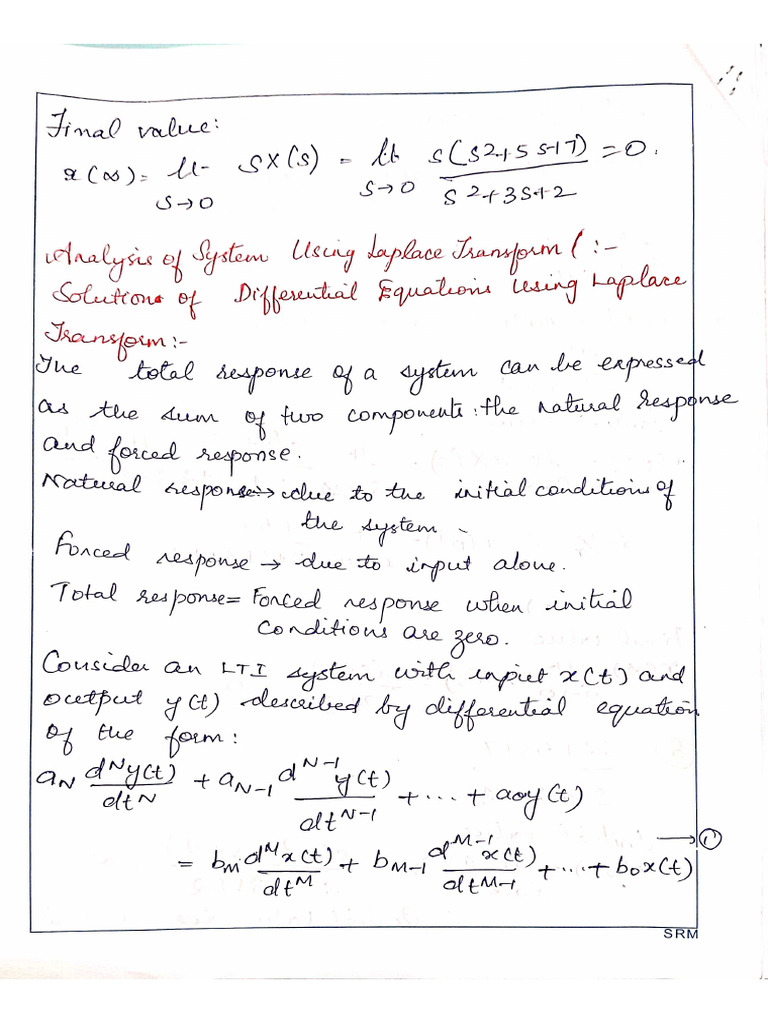 Final value:
x(∞) = Lt s→0 SX(s) = Lt s→0 s(s2+5s+7) / s2+3s+2 = 0.
Analysis of System Using Laplace Transform ( :-
Solutions of Differential Equations Using Laplace
Transform:-
The total response of a system can be expressed
as the sum of two components: the natural response
and forced response.
Natural response → due to the initial conditions of
the system.
Forced response → due to input alone.
Total response = Forced response when initial
conditions are zero.
Consider an LTI system with input x(t) and
output y(t) described by differential equation
of the form:
aN d^N y(t) / dt^N + aN-1 d^N-1 y(t) / dt^N-1 + ... + a0y(t)
= bM d^M x(t) / dt^M + bM-1 d^M-1 x(t) / dt^M-1 + ... + b0x(t) → ①
SRM